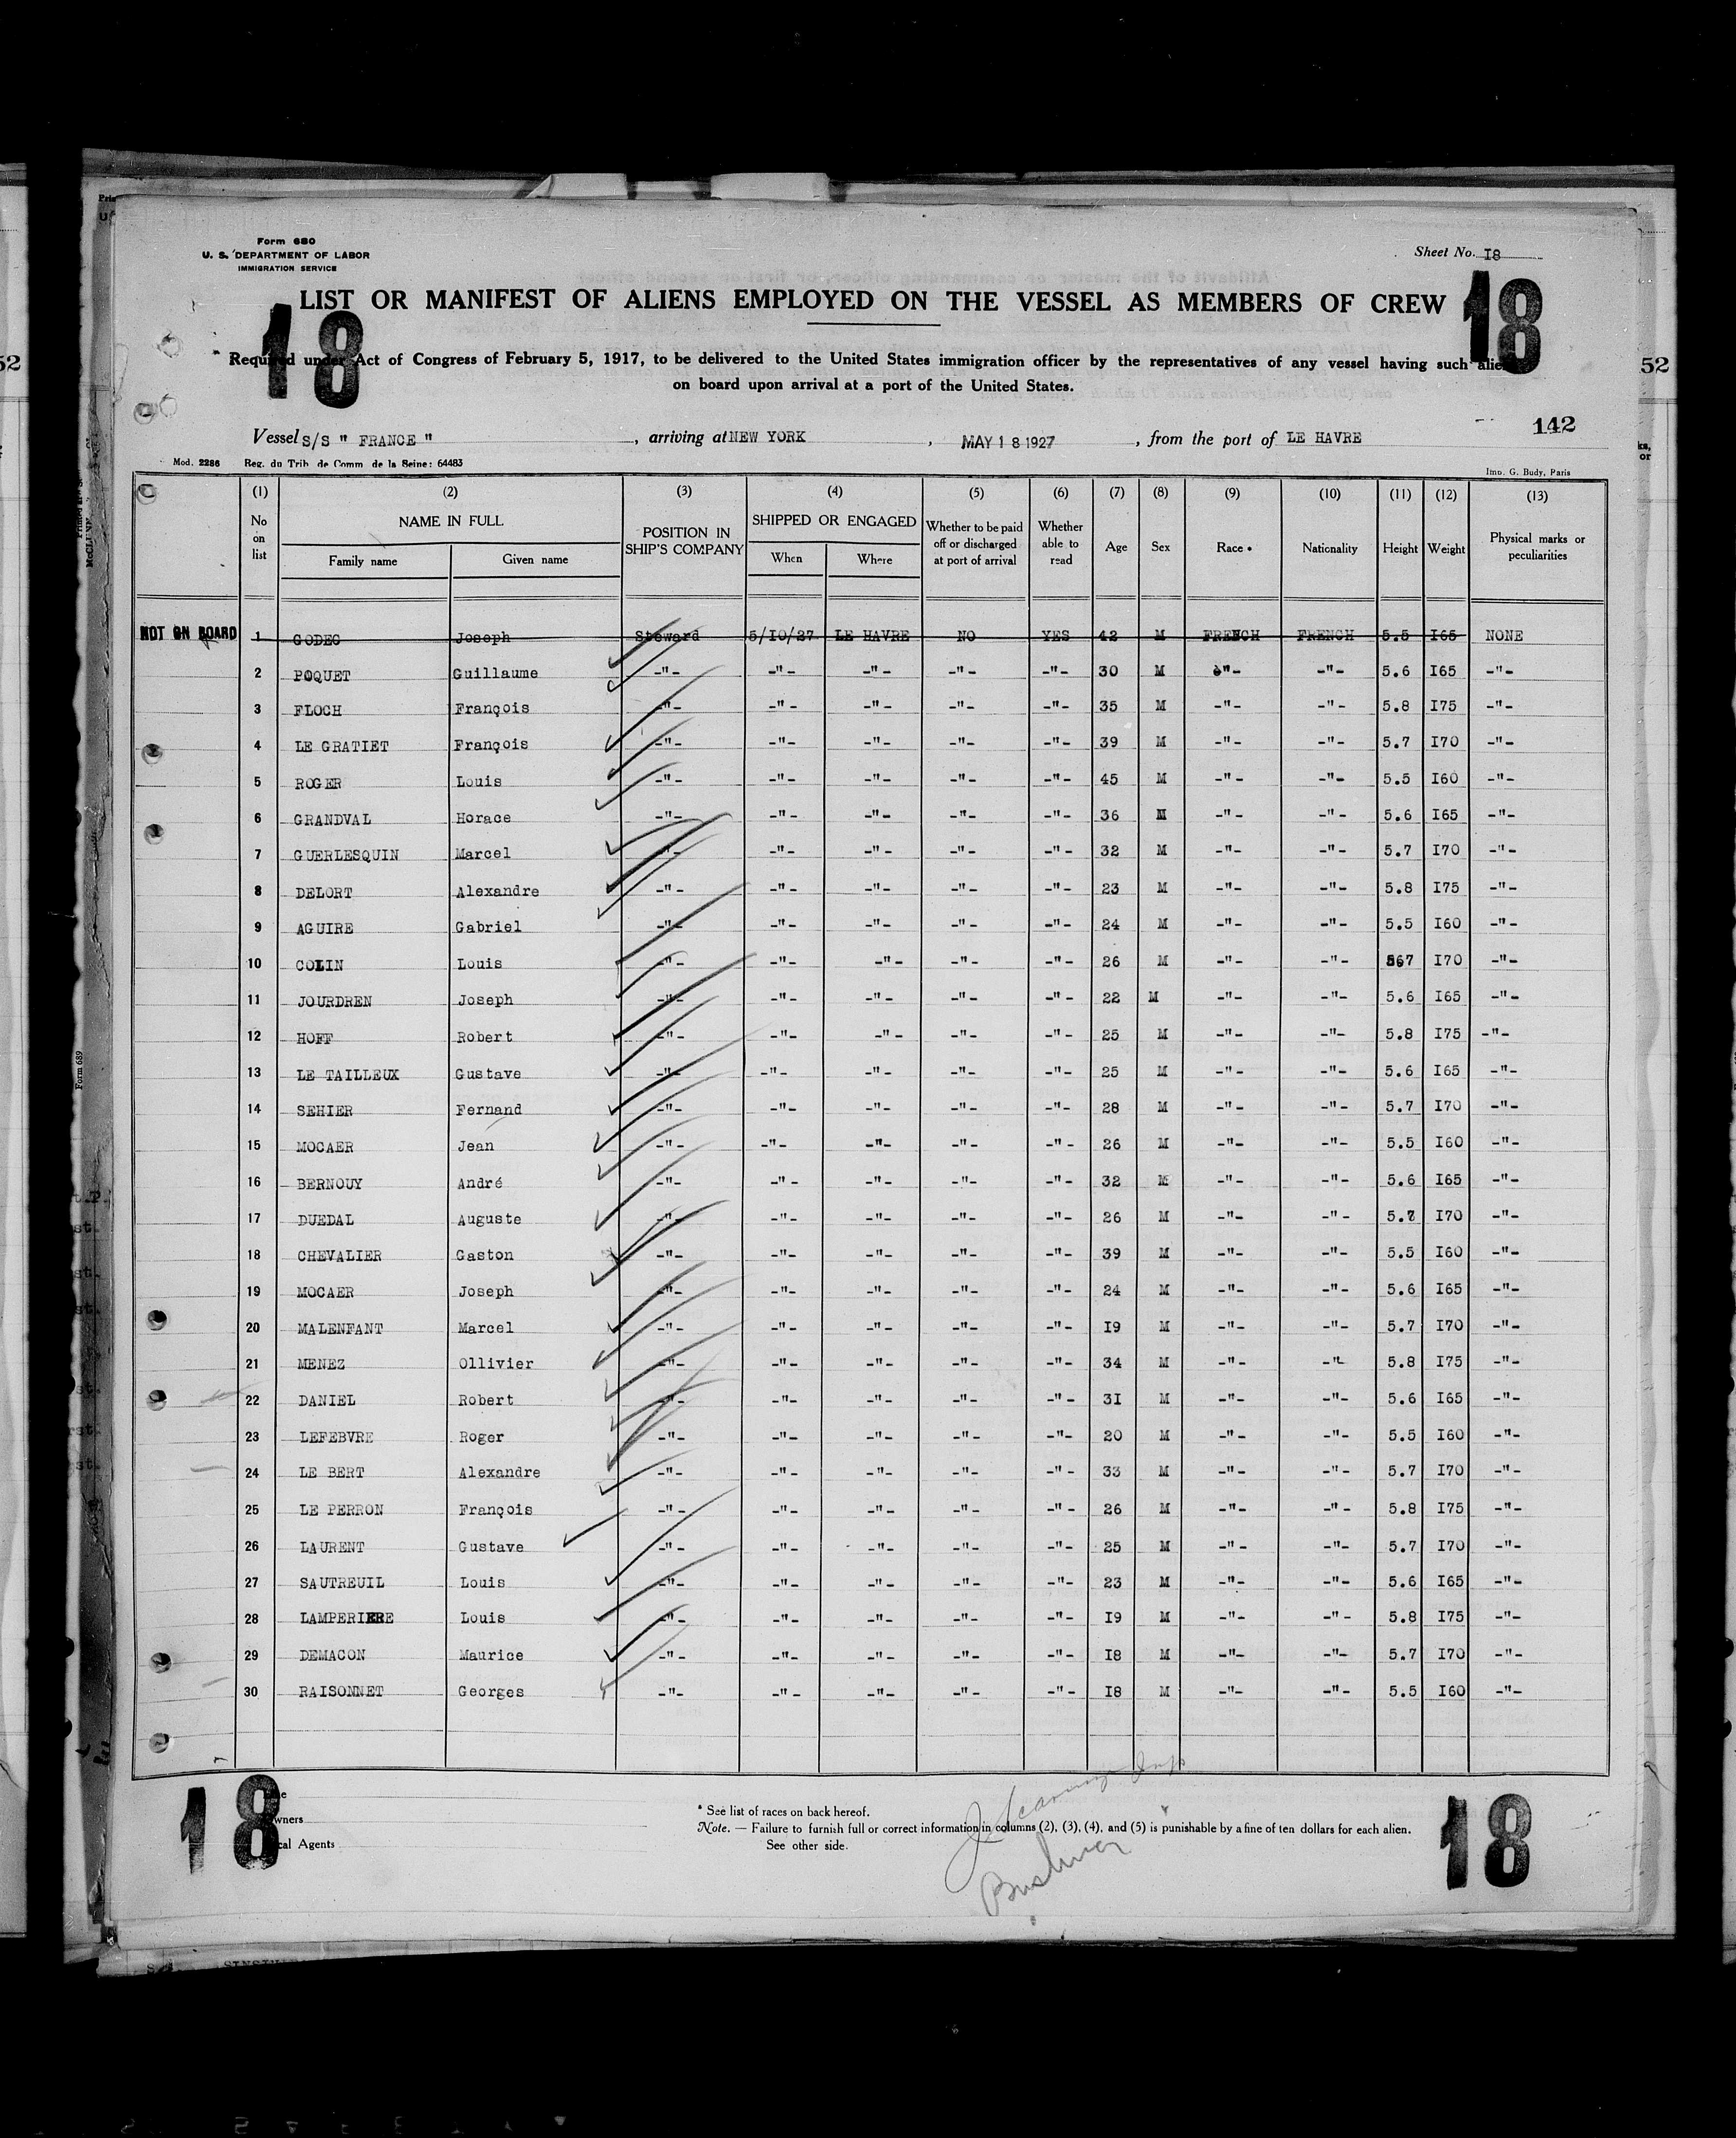 Form 680
U. S. DEPARTMENT OF LABOR
IMMIGRATION SERVICE
Sheet No. I8
LIST OR MANIFEST OF ALIENS EMPLOYED ON THE VESSEL AS MEMBERS OF CREW
18 18
Required under Act of Congress of February 5, 1917, to be delivered to the United States immigration officer by the representatives of any vessel having such alien
on board upon arrival at a port of the United States.
52 52
142
Vessel S/S " FRANCE ", arriving at NEW YORK, MAY 18 1927, from the port of LE HAVRE
Mod. 2286 Reg. du Trib. de Comm. de la Seine: 64483 Imp. G. Budy, Paris
(1) (2) (3) (4) (5) (6) (7) (8) (9) (10) (11) (12) (13)
No on list NAME IN FULL Family name Given name POSITION IN SHIP'S COMPANY SHIPPED OR ENGAGED When Where Whether to be paid off or discharged at port of arrival Whether able to read Age Sex Race * Nationality Height Weight Physical marks or peculiarities
NOT ON BOARD 1 GODEC Joseph Steward 5/I0/27 LE HAVRE NO YES 42 M FRENCH FRENCH 5.5 I65 NONE
2 POQUET Guillaume -"- -"- -"- -"- -"- 30 M -"- -"- 5.6 I65 -"-
3 FLOCH François -"- -"- -"- -"- -"- 35 M -"- -"- 5.8 I75 -"-
4 LE GRATIET François -"- -"- -"- -"- -"- 39 M -"- -"- 5.7 I70 -"-
5 ROGER Louis -"- -"- -"- -"- -"- 45 M -"- -"- 5.5 I60 -"-
6 GRANDVAL Horace -"- -"- -"- -"- -"- 36 M -"- -"- 5.6 I65 -"-
7 GUERLESQUIN Marcel -"- -"- -"- -"- -"- 32 M -"- -"- 5.7 I70 -"-
8 DELORT Alexandre -"- -"- -"- -"- -"- 23 M -"- -"- 5.8 I75 -"-
9 AGUIRE Gabriel -"- -"- -"- -"- -"- 24 M -"- -"- 5.5 I60 -"-
10 COLIN Louis -"- -"- -"- -"- -"- 26 M -"- -"- 567 I70 -"-
11 JOURDREN Joseph -"- -"- -"- -"- -"- 22 M -"- -"- 5.6 I65 -"-
12 HOFF Robert -"- -"- -"- -"- -"- 25 M -"- -"- 5.8 I75 -"-
13 LE TAILLEUX Gustave -"- -"- -"- -"- -"- 25 M -"- -"- 5.6 I65 -"-
14 SEHIER Fernand -"- -"- -"- -"- -"- 28 M -"- -"- 5.7 I70 -"-
15 MOCAER Jean -"- -"- -"- -"- -"- 26 M -"- -"- 5.5 I60 -"-
16 BERNOUY André -"- -"- -"- -"- -"- 32 M -"- -"- 5.6 I65 -"-
17 DUEDAL Auguste -"- -"- -"- -"- -"- 26 M -"- -"- 5.7 I70 -"-
18 CHEVALIER Gaston -"- -"- -"- -"- -"- 39 M -"- -"- 5.5 I60 -"-
19 MOCAER Joseph -"- -"- -"- -"- -"- 24 M -"- -"- 5.6 I65 -"-
20 MALENFANT Marcel -"- -"- -"- -"- -"- I9 M -"- -"- 5.7 I70 -"-
21 MENEZ Ollivier -"- -"- -"- -"- -"- 34 M -"- -"- 5.8 I75 -"-
22 DANIEL Robert -"- -"- -"- -"- -"- 3I M -"- -"- 5.6 I65 -"-
23 LEFEBVRE Roger -"- -"- -"- -"- -"- 20 M -"- -"- 5.5 I60 -"-
24 LE BERT Alexandre -"- -"- -"- -"- -"- 33 M -"- -"- 5.7 I70 -"-
25 LE PERRON François -"- -"- -"- -"- -"- 26 M -"- -"- 5.8 I75 -"-
26 LAURENT Gustave -"- -"- -"- -"- -"- 25 M -"- -"- 5.7 I70 -"-
27 SAUTREUIL Louis -"- -"- -"- -"- -"- 23 M -"- -"- 5.6 I65 -"-
28 LAMPERIERE Louis -"- -"- -"- -"- -"- I9 M -"- -"- 5.8 I75 -"-
29 DEMACON Maurice -"- -"- -"- -"- -"- I8 M -"- -"- 5.7 I70 -"-
30 RAISONNET Georges -"- -"- -"- -"- -"- I8 M -"- -"- 5.5 I60 -"-
18 18
wners
cal Agents
* See list of races on back hereof.
Note. — Failure to furnish full or correct information in columns (2), (3), (4), and (5) is punishable by a fine of ten dollars for each alien.
See other side.
Form 689